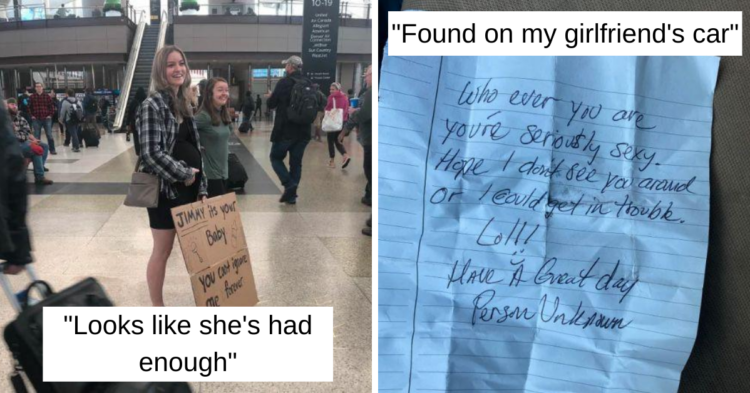 10-19
United
Air Canada
Allegiant
JetBlue
Sun Country
JIMMY its your
Baby
you can't ignore
me forever
"Looks like she's had
enough"
"Found on my girlfriend's car"
Who ever you are
you're seriously sexy.
Hope I don't see you around
or I could get in trouble.
Lol!!
HAVE A Great day
Person Unknown